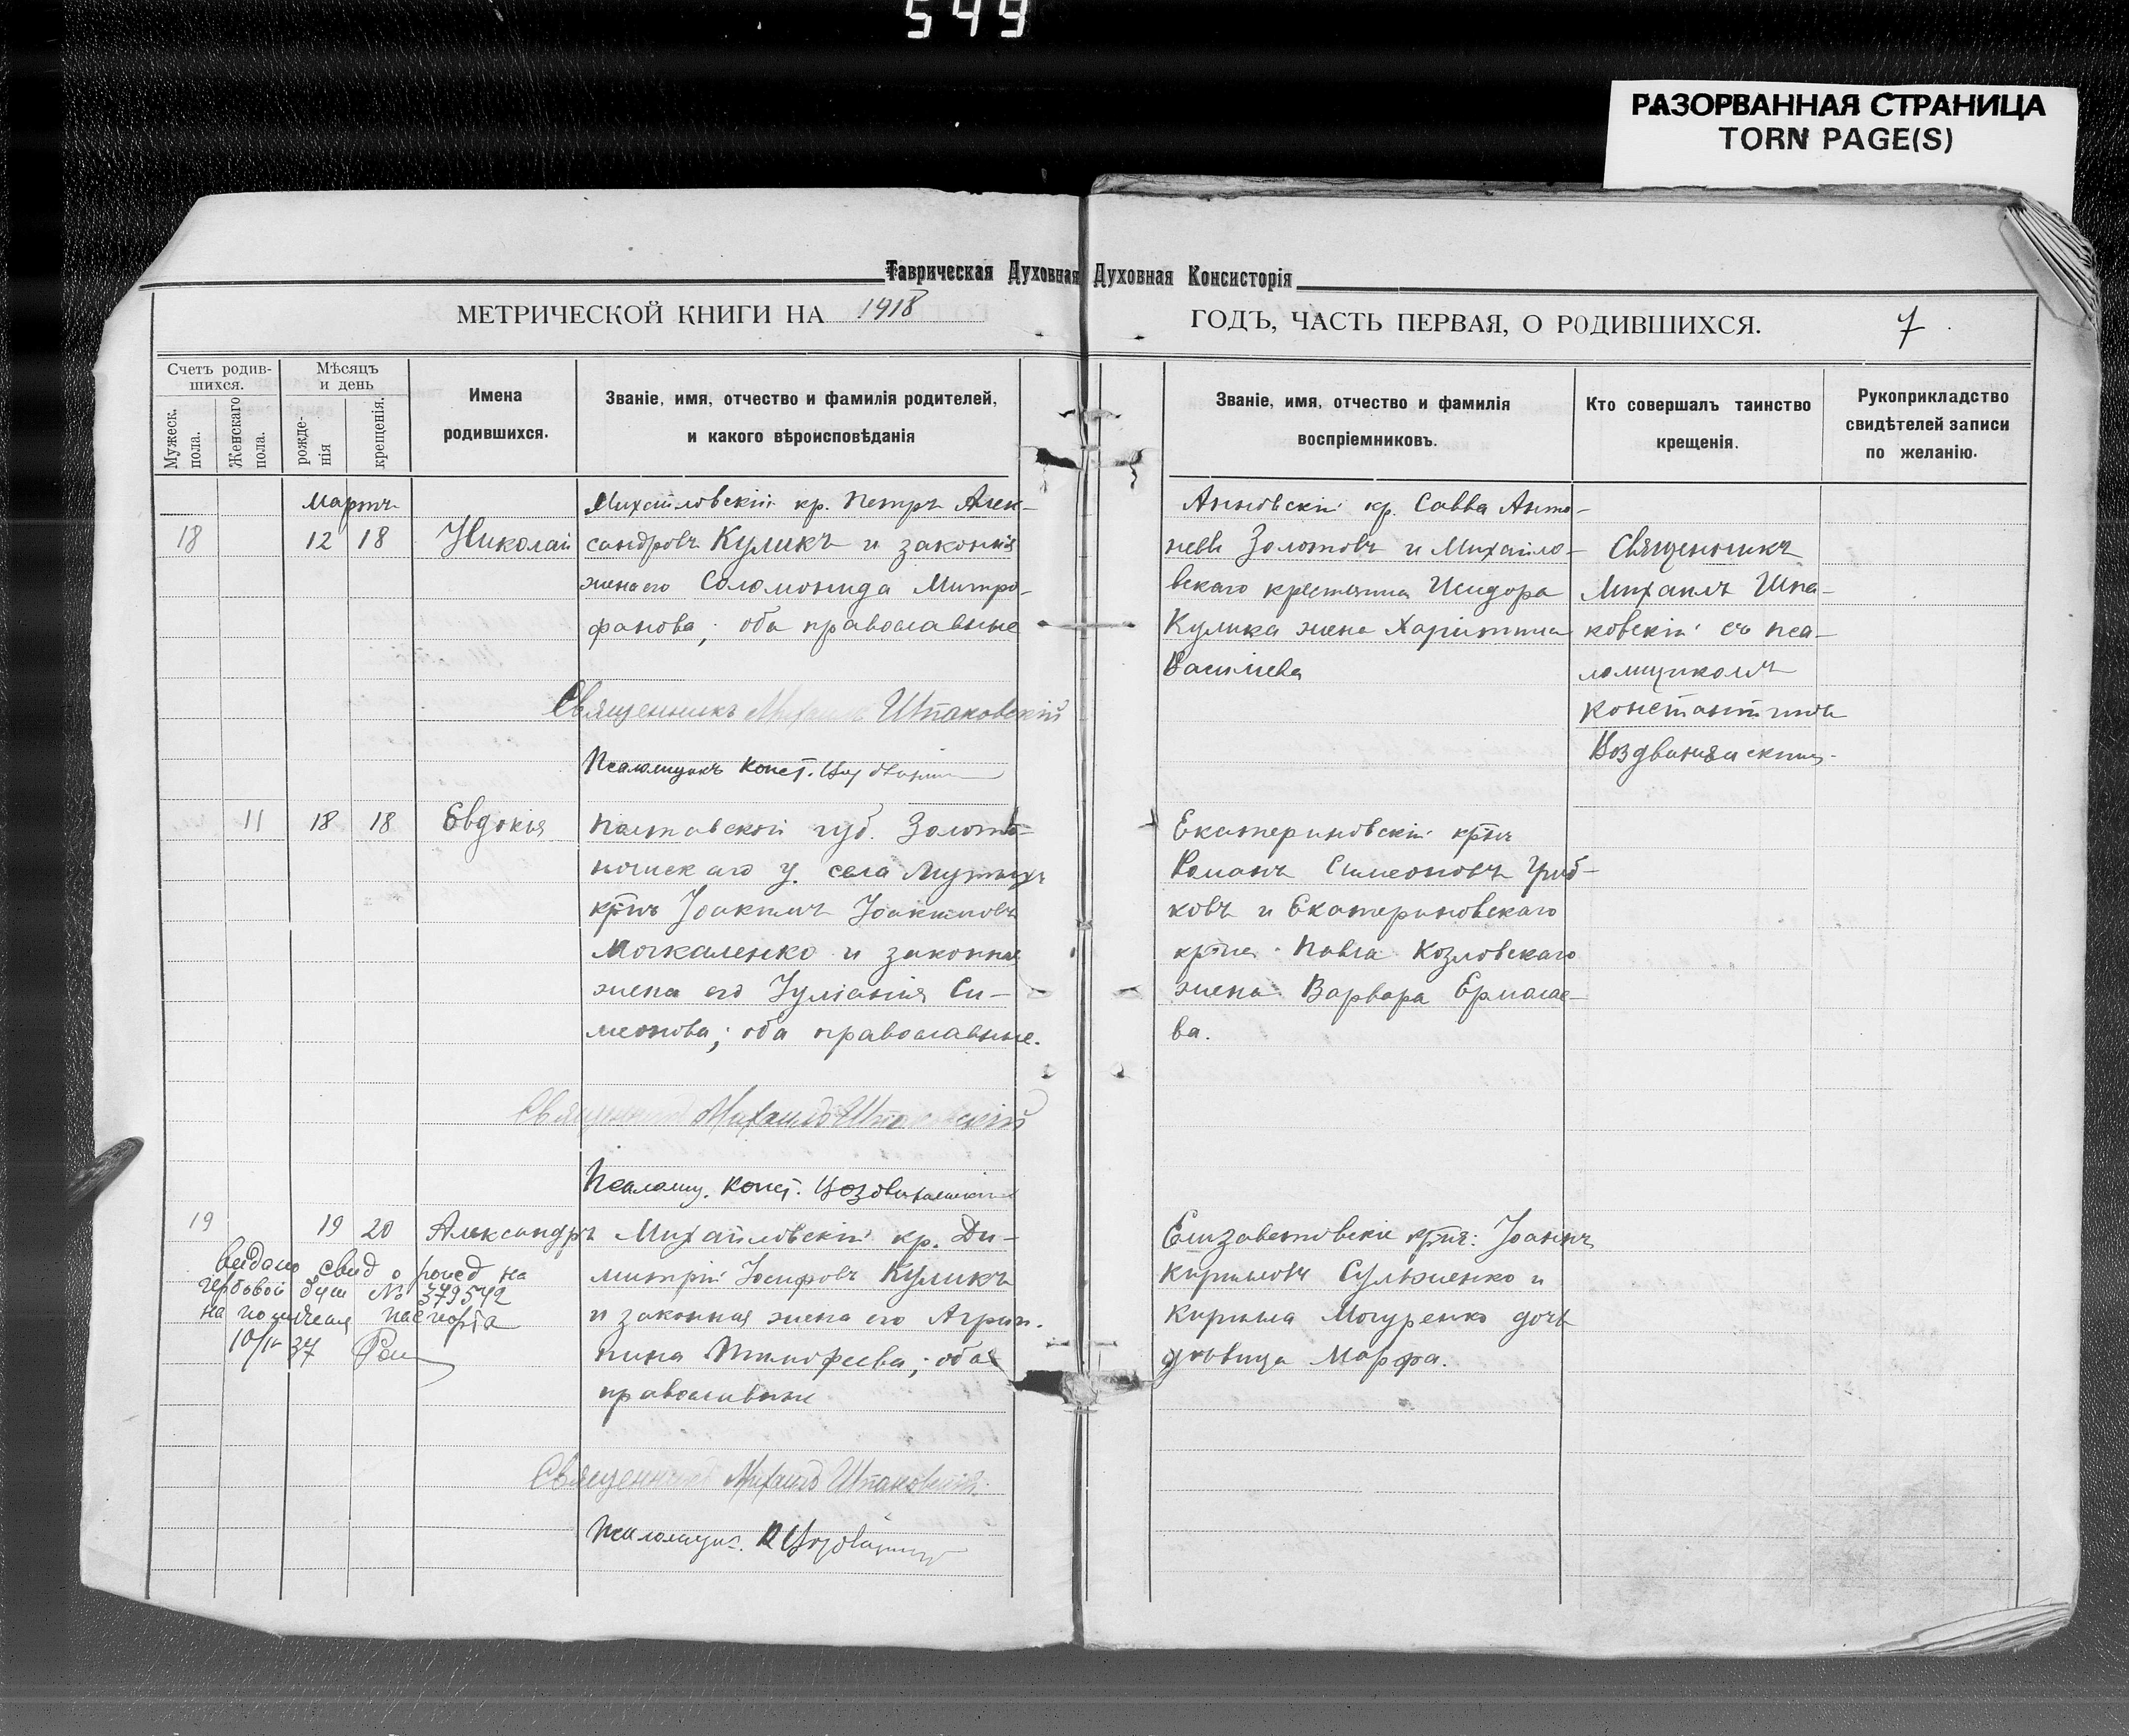 549
РАЗОРВАННАЯ СТРАНИЦА
TORN PAGE(S)
Таврическая Духовная Духовная Консисторія
МЕТРИЧЕСКОЙ КНИГИ НА 1918
ГОДЪ, ЧАСТЬ ПЕРВАЯ, О РОДИВШИХСЯ.
7
Счетъ родив-
шихся.
Мужеск.
пола.
Женскаго
пола.
Мѣсяцъ
и день
рожде-
нія
крещенія.
Имена
родившихся.
Званіе, имя, отчество и фамилія родителей,
и какого вѣроисповѣданія
Званіе, имя, отчество и фамилія
воспріемниковъ.
Кто совершалъ таинство
крещенія.
Рукоприкладство
свидѣтелей записи
по желанію.
Мартъ
18
12 18
Николай
Михайловскій кр. Петръ Алек-
сандровъ Куликъ и законная
жена его Соломонида Митро-
фанова; оба православные
Священникъ Михаилъ Шпаковскій
Псаломщикъ Конст.
Анновскій кр. Савва Анто-
невъ Золотовъ и Михайло-
вскаго крестьянина Исидора
Кулика жена Харитина
Васильева
Священникъ
Михаилъ Шпа-
ковскій съ пса-
ломщикомъ
Константиномъ
Воздвиженскимъ.
11 18 18
Евдокія
Полтавской губ. Золото-
ношскаго у. села
кр͞нъ Іоакимъ Іоакимовъ
Москаленко и законная
жена его Іуліанія Си-
меонова; оба православные.
Священникъ Михаилъ Шпаковскій
Псаломщ. Конст. Воздвиженскій
Екатериновскій кр͞нъ
Романъ Симеоновъ Гриб-
ковъ и Екатериновскаго
кр͞на Павла Козловскаго
жена Варвара Ермолае-
ва.
19
19 20
Александръ
Михайловскій кр. Ди-
митрій Іосифовъ Куликъ
и законная жена его Агрип-
пина Тимофеева; оба
православные
Священникъ Михаилъ Шпаковскій
Псаломщик.
выдано свид о рожд на
гербовой бум № 379542
на получения паспорта
37
Елизаветовскіе кр͞не: Іоаннъ
Кирилловъ Сулженко и
Кирилла Могуренко дочь
дѣвица Марфа.